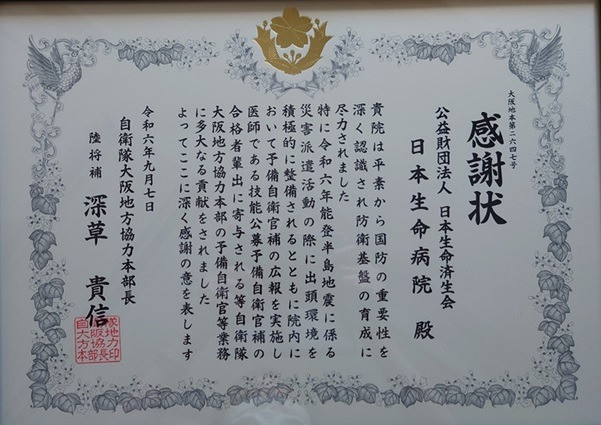 大阪地本第二六四七号
感謝状
公益財団法人 日本生命済生会
日本生命病院 殿
貴院は平素から国防の重要性を
深く認識され防衛基盤の育成に
尽力されました
特に令和六年能登半島地震に係る
災害派遣活動の際に出頭環境を
積極的に整備されるとともに院内に
おいて予備自衛官補の広報を実施し
医師である技能公募予備自衛官補の
合格者輩出に寄与される等自衛隊
大阪地方協力本部の予備自衛官等業務
に多大なる貢献をされました
よってここに深く感謝の意を表します
令和六年九月七日
自衛隊大阪地方協力本部長
陸将補 深草 貴信